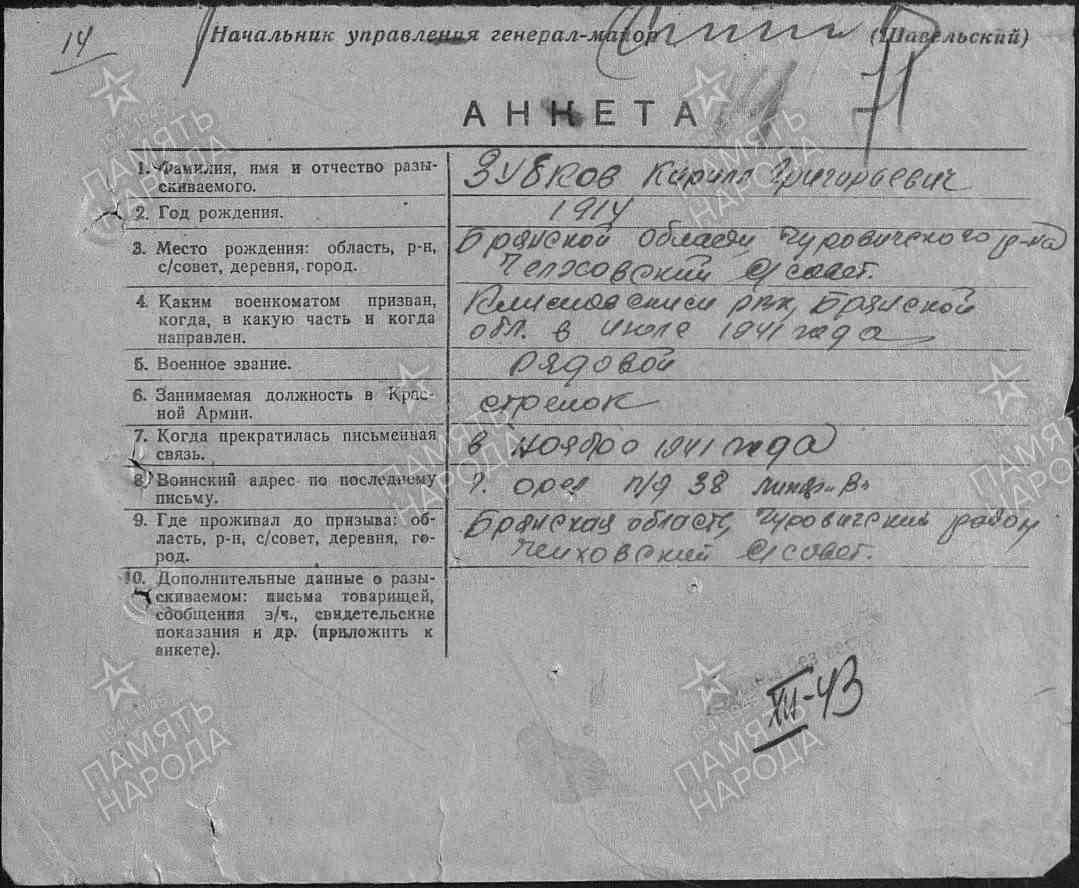 14
Начальник управления генерал-майор (Шавельский)
71
АНКЕТА
1. Фамилия, имя и отчество разыскиваемого.
Зубков Кирилл Григорьевич
2. Год рождения.
1914
3. Место рождения: область, р-н,
с/совет, деревня, город.
Брянской области Чуровичского р-на
Челховский с/совет.
4. Каким военкоматом призван,
когда, в какую часть и когда
направлен.
рвк, Брянской
обл. в июле 1941 года
5. Военное звание.
рядовой
6. Занимаемая должность в Красной Армии.
стрелок
7. Когда прекратилась письменная
связь.
в ноябре 1941 года
8. Воинский адрес по последнему
письму.
г. орел п/я 38
9. Где проживал до призыва: область, р-н, с/совет, деревня, город.
Брянская область, Чуровичский район
Челховский с/совет.
10. Дополнительные данные о разыскиваемом: письма товарищей,
сообщения в/ч., свидетельские
показания и др. (приложить к
анкете).
XII-43
ПАМЯТЬ
НАРОДА